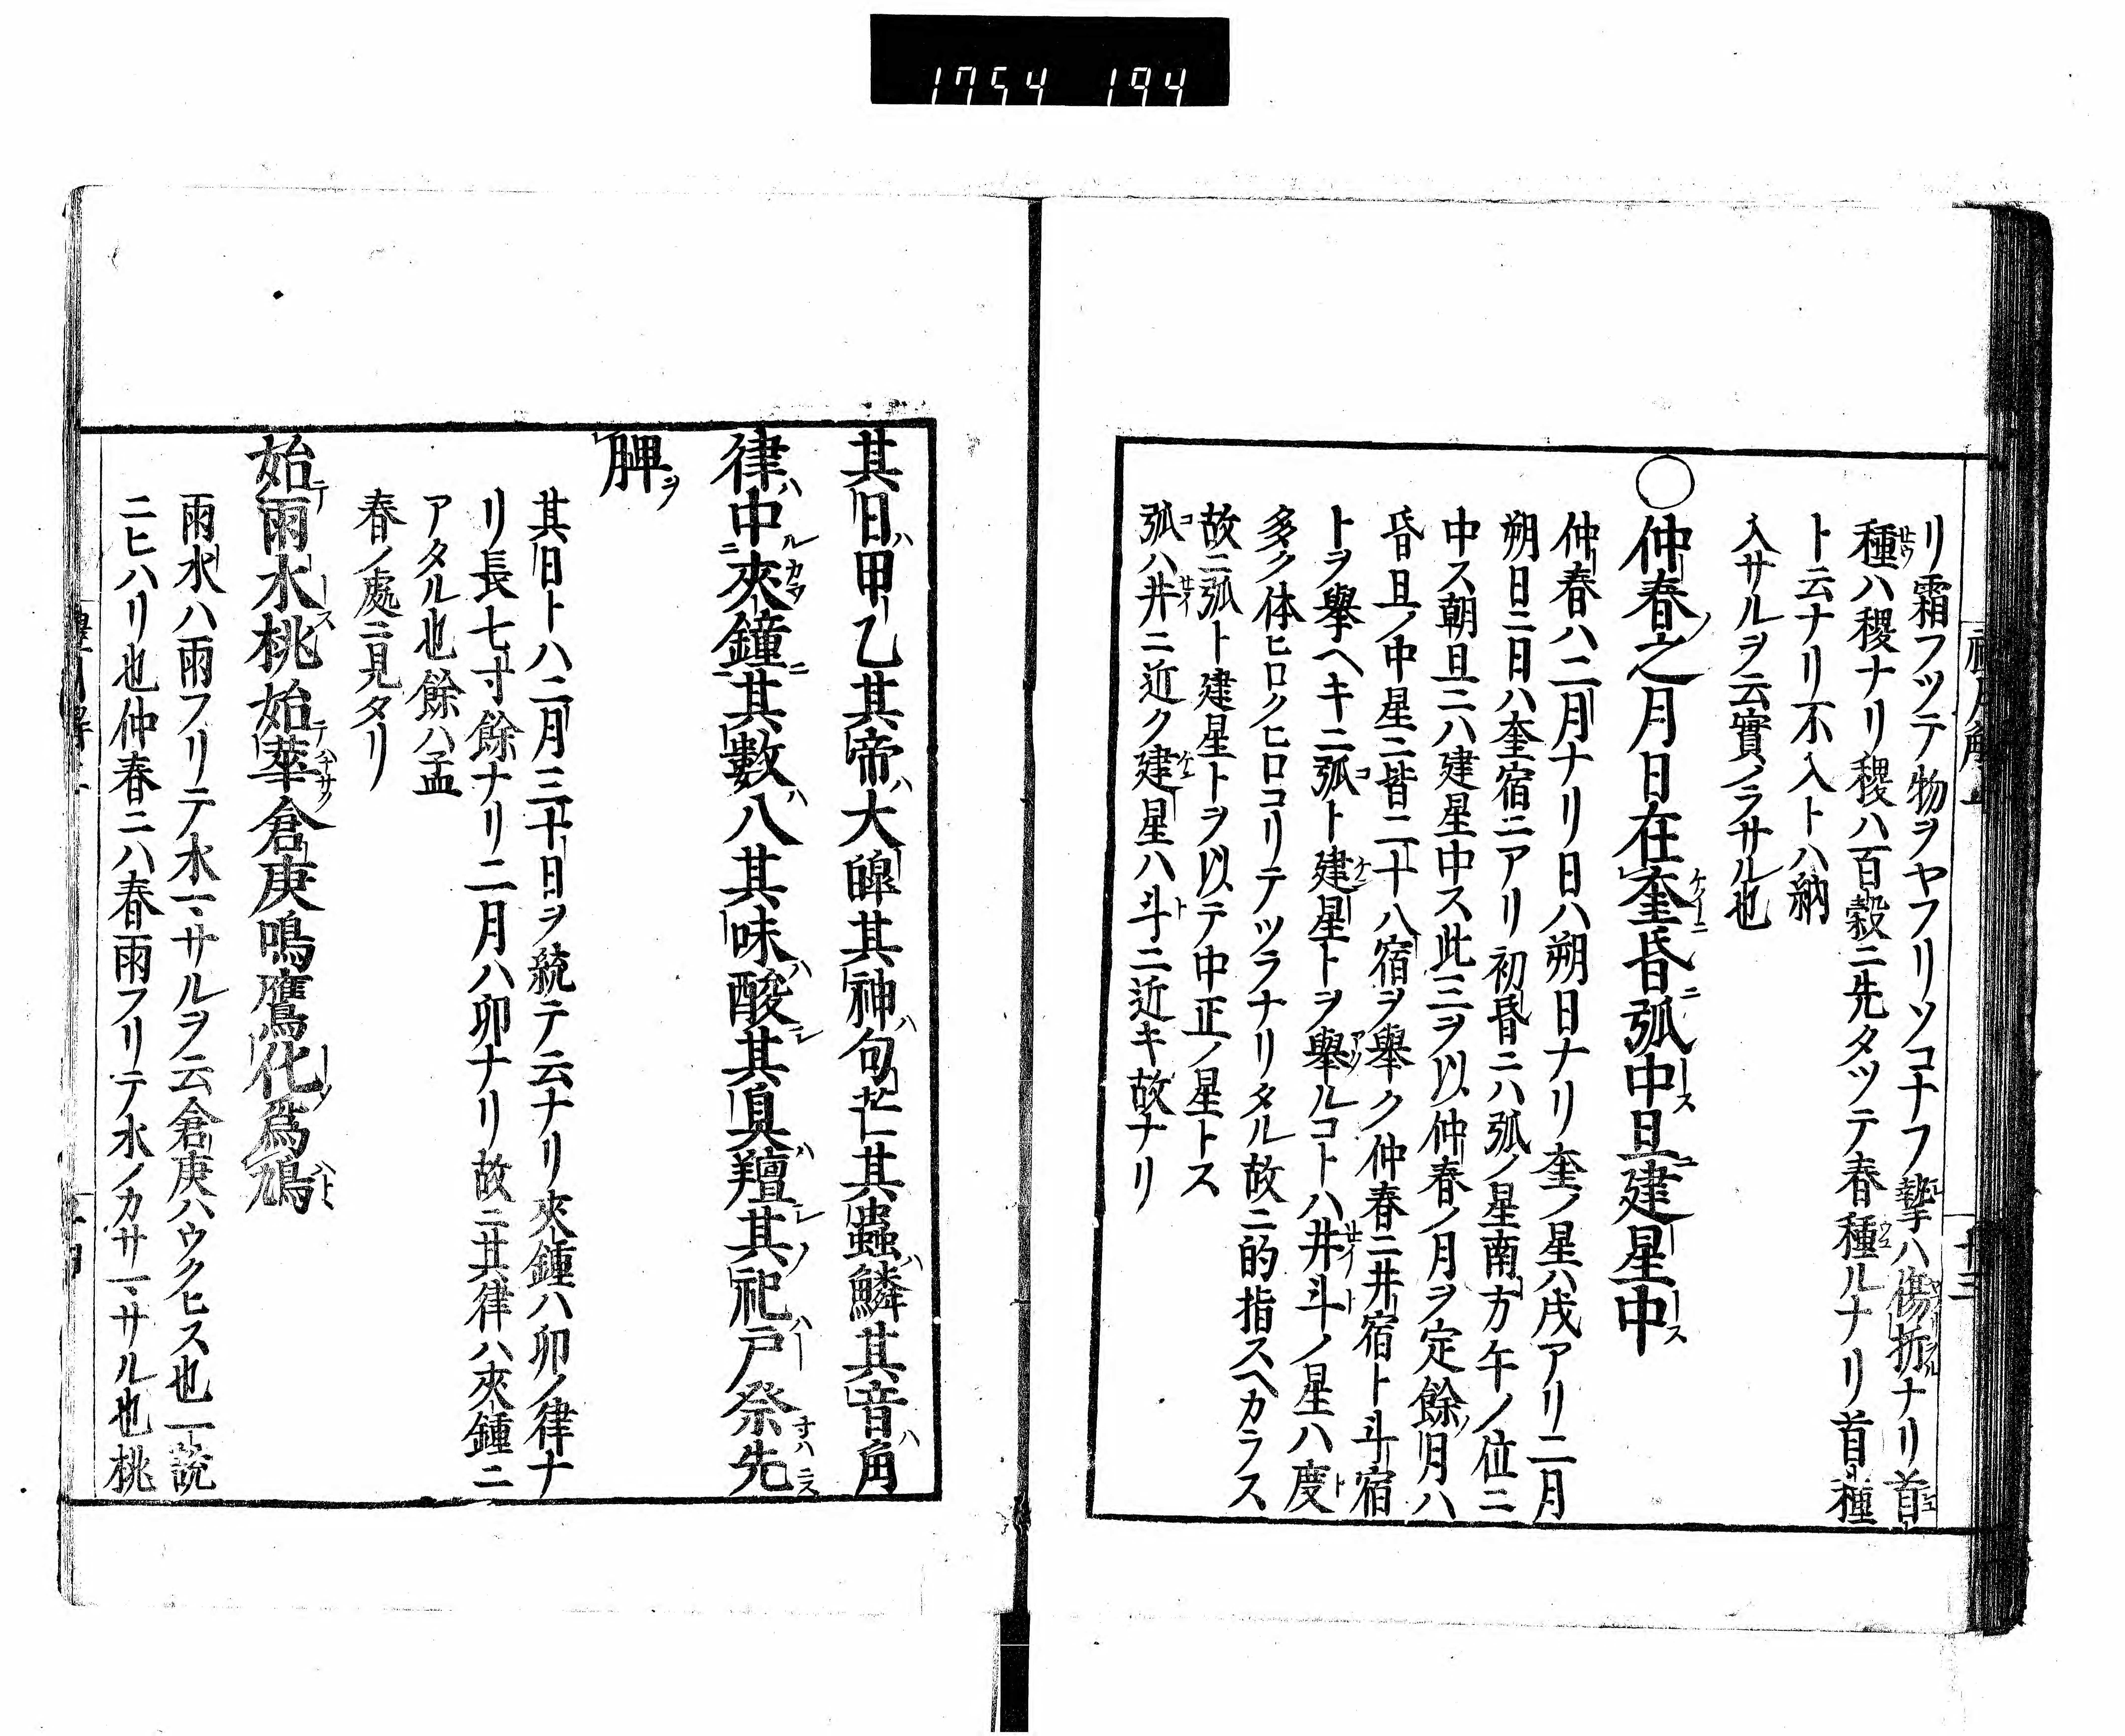 1754 194
リ霜フツテ物ヲヤフリソコナフ摯ハ傷折ナリ首
種ハ稷ナリ稷ハ百穀ニ先タツテ春種ルナリ首種
ト云ナリ不入トハ納
入サルヲ云實ノラサル也
○仲春之月日在奎昏弧中旦建星中
仲春ハ二月ナリ日ハ朔日ナリ奎ノ星ハ戌アリ二月
朔日ニ日ハ奎宿ニアリ初昏ニハ弧ノ星南方午ノ位ニ
中ス朝旦ニハ建星中ス此三ヲ以仲春ノ月ヲ定餘月ハ
昏旦ノ中星ニ皆二十八宿ヲ舉ク仲春ニ井宿ト斗宿
トヲ舉ヘキニ弧ト建星トヲ舉ルコトハ井斗ノ星ハ度
多ク体ヒロクヒロコリテツラナリタル故ニ的指スヘカラス
故ニ弧ト建星トヲ以テ中正ノ星トス
弧ハ井ニ近ク建星ハ斗ニ近キ故ナリ
其日甲乙其帝大皥其神句芒其蟲鱗其音角
律中夾鐘其數八其味酸其臭羶其祀戸祭先
脾
其日トハ二月三十日ヲ統テ云ナリ夾鍾ハ卯ノ律ナ
リ長七寸餘ナリ二月ハ卯ナリ故ニ其律ハ夾鍾ニ
アタル也餘ハ孟
春ノ處ニ見タリ
始雨水桃始華倉庚鳴鷹化爲鳩
雨水ハ雨フリテ水マサルヲ云倉庚ハウクヒス也一説
ニヒハリ也仲春ニハ春雨フリテ水ノカサマサル也桃